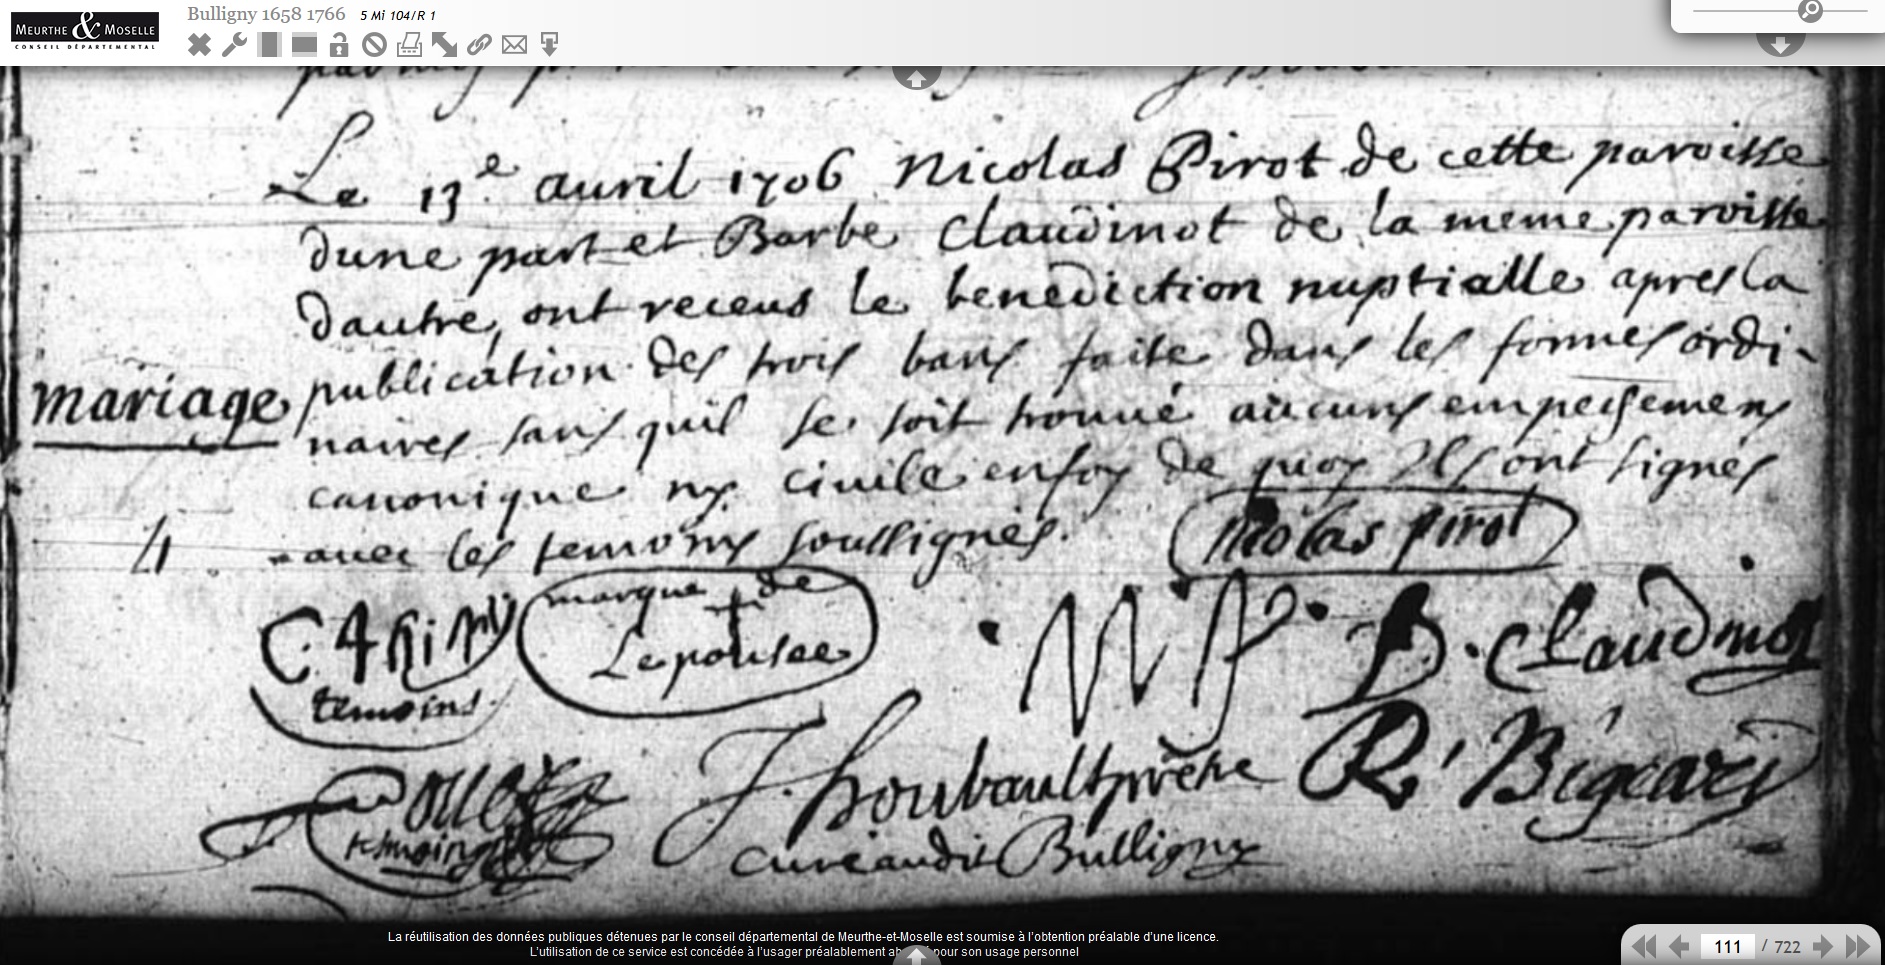 MEURTHE & MOSELLE
CONSEIL DÉPARTEMENTAL
Bulligny 1658 1766 5 Mi 104/R 1
Le 13e auril 1706 Nicolas Pirot de cette paroisse
dune part et Barbe Claudinot de la meme paroisse
dautre, ont receus le benediction nuptialle apres la
publication des trois bans faite dans les formes ordi-
mariage
naires sans quil se soit trouué aucuns empeschemens
canonique ny ciuile en foy de quoy Ils ont signés
4
auec les temoins soussignés.
nicolas pirot
C
temoins
marque de
Lepousee
B. Claudinot
temoing
J. houbault prêtre
cure audit Bulligny
R Bigeard
La réutilisation des données publiques détenues par le conseil départemental de Meurthe-et-Moselle est soumise à l'obtention préalable d'une licence.
L'utilisation de ce service est concédée à l'usager préalablement pour son usage personnel
111 / 722